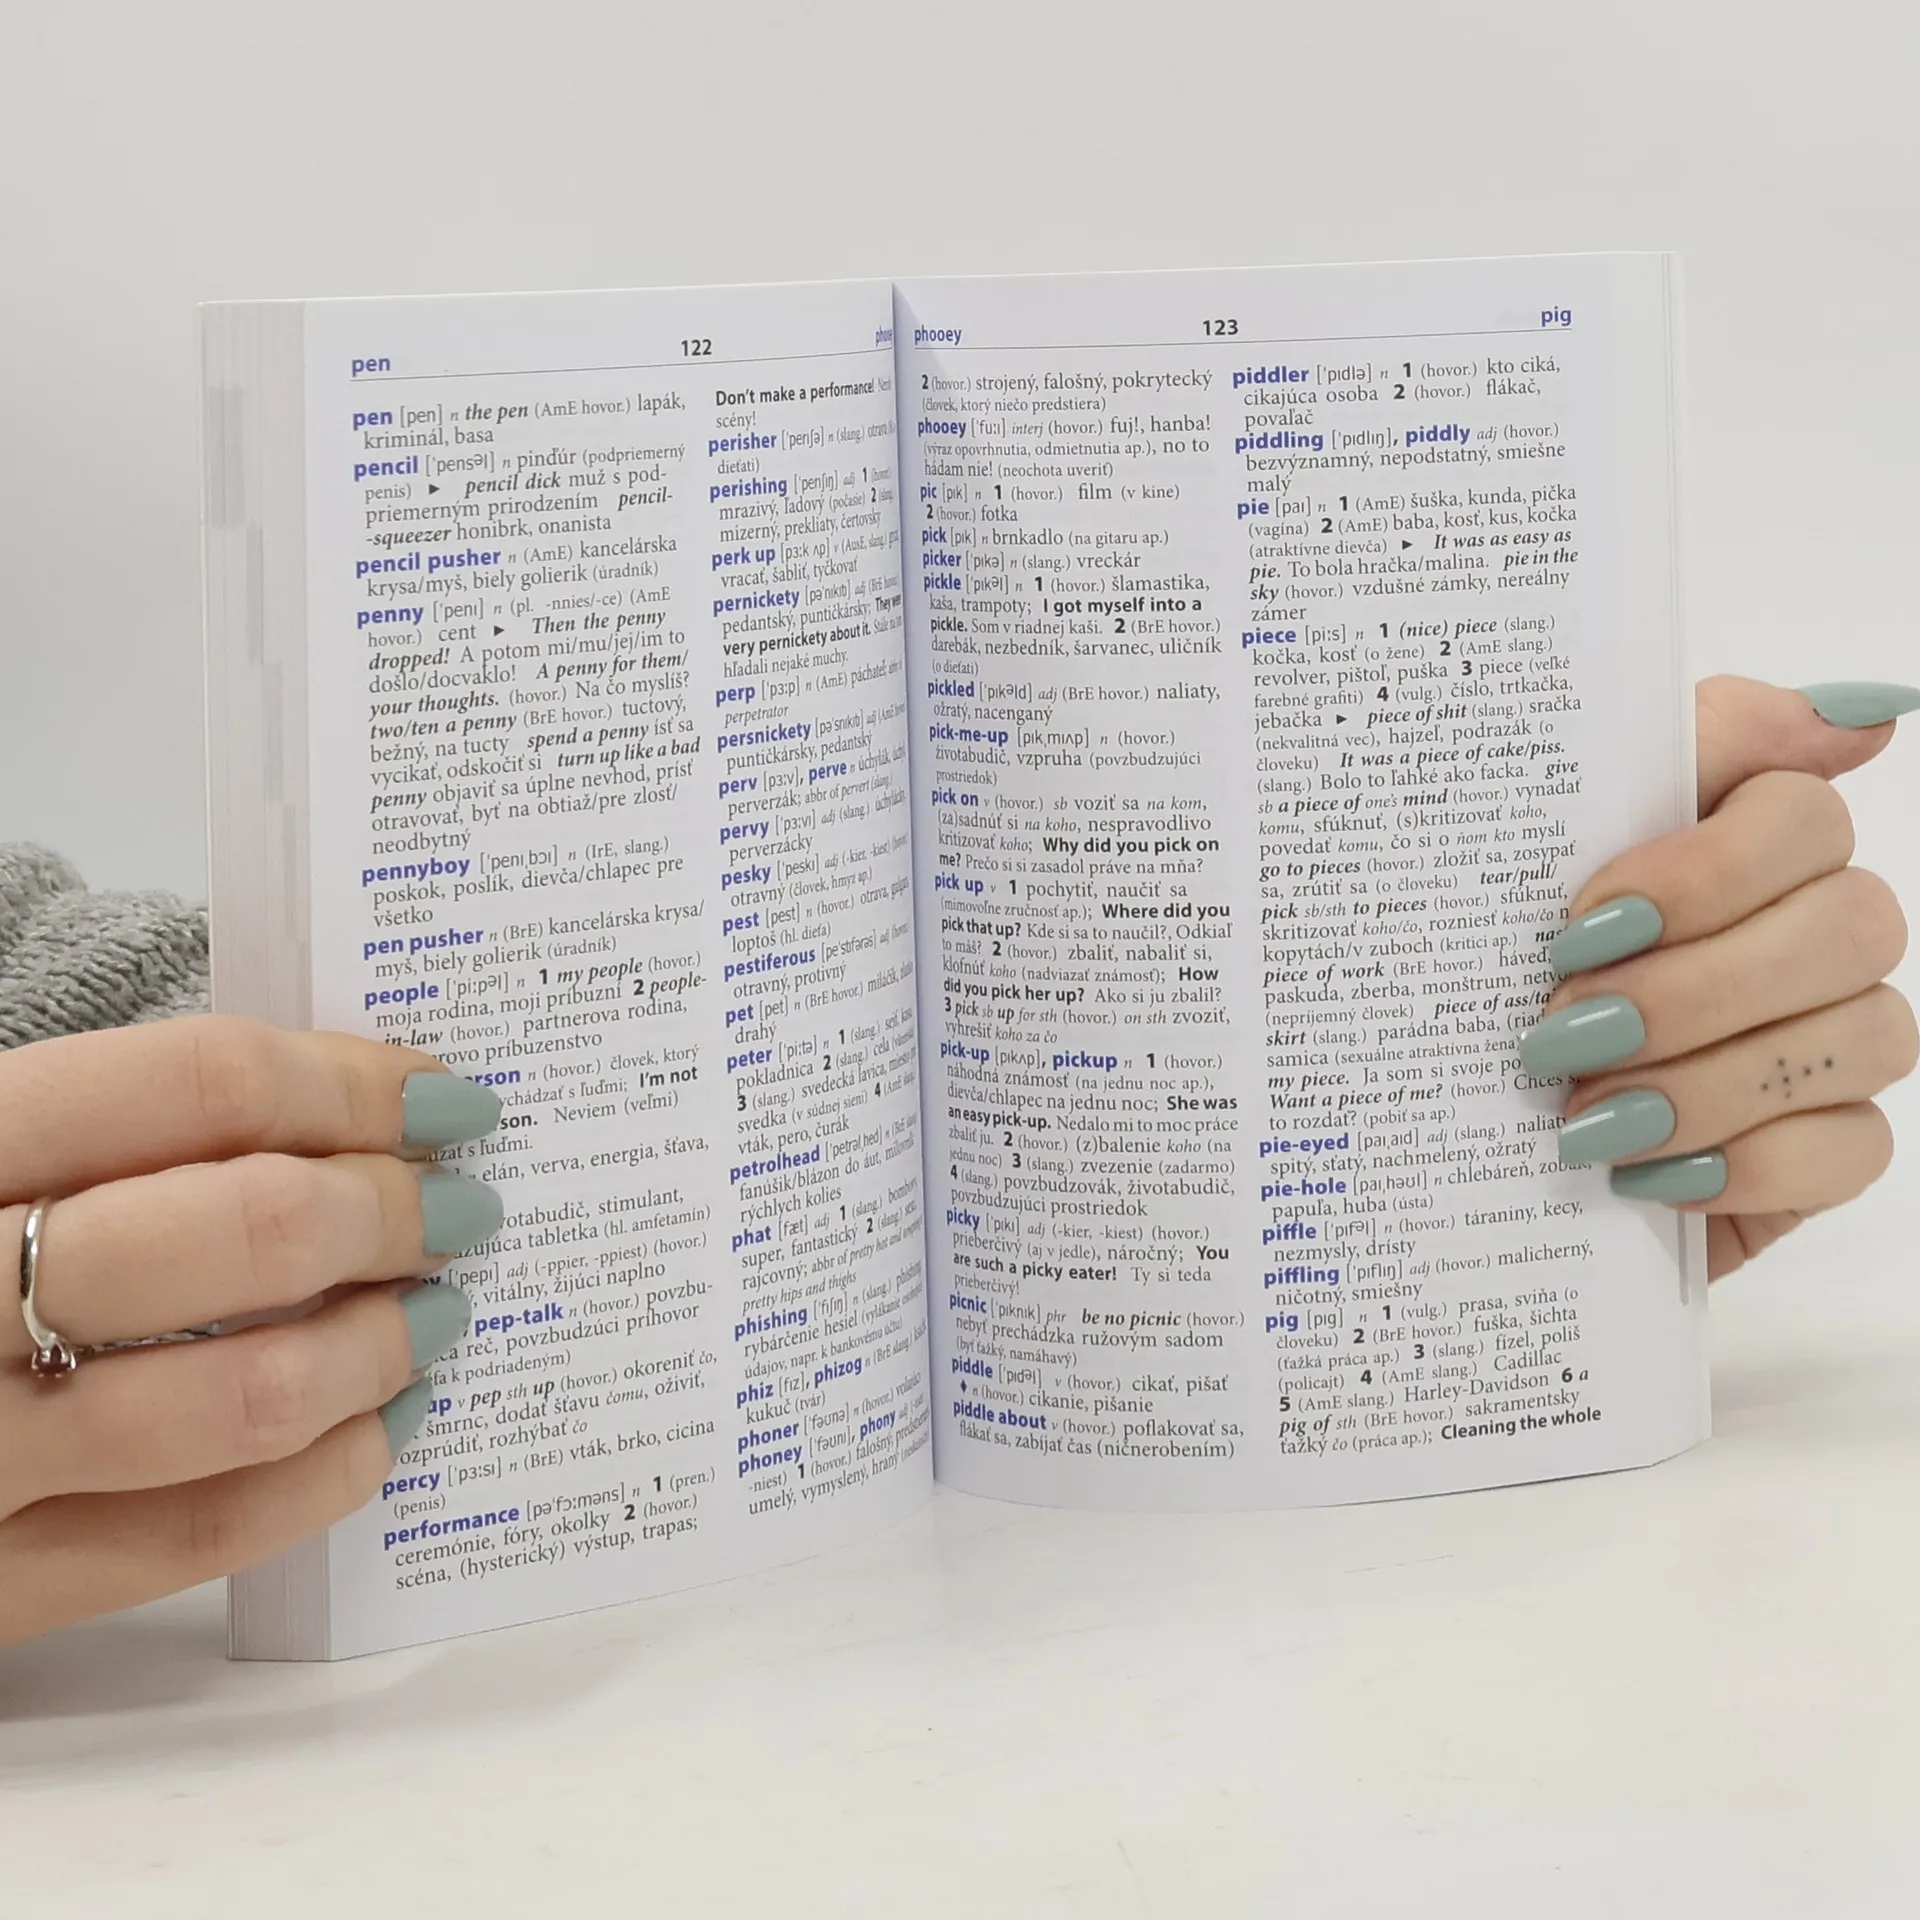 pen
122
pen [pen] n the pen (AmE hovor.) lapák,
kriminál, basa
pencil ['pensəl] n pinďúr (podpriemerný
penis) ► pencil dick muž s pod-
priemerným prirodzením pencil-
-squeezer honibrk, onanista
pencil pusher n (AmE) kancelárska
krysa/myš, biely golierik (úradník)
penny ['penɪ] n (pl. -nnies/-ce) (AmE
hovor.) cent ► Then the penny
dropped! A potom mi/mu/jej/im to
došlo/docvaklo! A penny for them/
your thoughts. (hovor.) Na čo myslíš?
two/ten a penny (BrE hovor.) tuctový,
bežný, na tucty spend a penny ísť sa
vycikať, odskočiť si turn up like a bad
penny objaviť sa úplne nevhod, prísť
otravovať, byť na obtiaž/pre zlosť/
neodbytný
pennyboy ['penɪˌbɔɪ] n (IrE, slang.)
poskok, poslík, dievča/chlapec pre
všetko
pen pusher n (BrE) kancelárska krysa/
myš, biely golierik (úradník)
people ['pi:pəl] n 1 my people (hovor.)
moja rodina, moji príbuzní 2 people-
in-law (hovor.) partnerova rodina,
príbuzenstvo
n (hovor.) človek, ktorý
s ľuďmi; I'm not
Neviem (veľmi)
s ľuďmi.
elán, verva, energia, šťava,
stimulant,
tabletka (hl. amfetamín)
['pepɪ] adj (-ppier, -ppiest) (hovor.)
vitálny, žijúci naplno
pep-talk n (hovor.) povzbu-
reč, povzbudzúci príhovor
k podriadeným)
v pep sth up (hovor.) okoreniť čo,
šmrnc, dodať šťavu čomu, oživiť,
rozprúdiť, rozhýbať čo
percy ['pɜ:sɪ] n (BrE) vták, brko, cicina
(penis)
performance [pə'fɔ:məns] n 1 (pren.)
ceremónie, fóry, okolky 2 (hovor.)
scéna, (hysterický) výstup, trapas;
Don't make a performance!
scény!
perisher ['perɪʃə] n (slang.) otrava
dieťati)
perishing ['perɪʃɪŋ] adj 1
mrazivý, ľadový (počasie) 2
mizerný, prekliaty, čertovský
perk up [pɜ:k ʌp] v (AusE, slang.)
vracať, šabliť, tyčkovať
pernickety [pə'nɪkɪtɪ] adj (BrE
pedantský, puntičkársky; They were
very pernickety about it. Stále
hľadali nejaké muchy.
perp ['pɜ:p] n (AmE) páchateľ;
perpetrator
persnickety [pə'snɪkɪtɪ] adj (AmE
puntičkársky, pedantský
perv [pɜ:v], perve n úchylák,
perverzák; abbr of pervert (slang.)
pervy ['pɜ:vɪ] adj (slang.)
perverzácky
pesky ['peskɪ] adj (-kier, -kiest)
otravný (človek, hmyz ap.)
pest [pest] n (hovor.) otrava,
loptoš (hl. dieťa)
pestiferous [pe'stɪfərəs] adj
otravný, protivný
pet [pet] n (BrE hovor.) miláčik,
drahý
peter ['pi:tə] n 1 (slang.) sejf,
pokladnica 2 (slang.) cela
3 (slang.) svedecká lavica, miesto
svedka (v súdnej sieni) 4
vták, pero, čurák
petrolhead ['petrəlˌhed] n
fanúšik/blázon do áut, milovník
rýchlych kolies
phat [fæt] adj 1 (slang.)
super, fantastický 2 (slang.) sexi,
rajcovný; abbr of pretty hot and
pretty hips and thighs
phishing ['fɪʃɪŋ] n (slang.) phishing,
rybárčenie hesiel (vylákanie
údajov, napr. k bankovému účtu)
phiz [fɪz], phizog n (BrE slang.)
kukuč (tvár)
phoner ['fəʊnə] n (hovor.)
phoney ['fəʊnɪ], phony adj
-niest) 1 (hovor.) falošný,
umelý, vymyslený, hraný
phooey
123
pig
2 (hovor.) strojený, falošný, pokrytecký
(človek, ktorý niečo predstiera)
phooey ['fu:ɪ] interj (hovor.) fuj!, hanba!
(výraz opovrhnutia, odmietnutia ap.), no to
hádam nie! (neochota uveriť)
pic [pɪk] n 1 (hovor.) film (v kine)
2 (hovor.) fotka
pick [pɪk] n brnkadlo (na gitaru ap.)
picker ['pɪkə] n (slang.) vreckár
pickle ['pɪkəl] n 1 (hovor.) šlamastika,
kaša, trampoty; I got myself into a
pickle. Som v riadnej kaši. 2 (BrE hovor.)
darebák, nezbedník, šarvanec, uličník
(o dieťati)
pickled ['pɪkəld] adj (BrE hovor.) naliaty,
ožratý, nacenganý
pick-me-up [pɪkˌmɪʌp] n (hovor.)
životabudič, vzpruha (povzbudzujúci
prostriedok)
pick on v (hovor.) sb voziť sa na kom,
(za)sadnúť si na koho, nespravodlivo
kritizovať koho; Why did you pick on
me? Prečo si si zasadol práve na mňa?
pick up v 1 pochytiť, naučiť sa
(mimovoľne zručnosť ap.); Where did you
pick that up? Kde si sa to naučil?, Odkiaľ
to máš? 2 (hovor.) zbaliť, nabaliť si,
klofnúť koho (nadviazať známosť); How
did you pick her up? Ako si ju zbalil?
3 pick sb up for sth (hovor.) on sth zvoziť,
vyhrešiť koho za čo
pick-up [pɪkʌp], pickup n 1 (hovor.)
náhodná známosť (na jednu noc ap.),
dievča/chlapec na jednu noc; She was
an easy pick-up. Nedalo mi to moc práce
zbaliť ju. 2 (hovor.) (z)balenie koho (na
jednu noc) 3 (slang.) zvezenie (zadarmo)
4 (slang.) povzbudzovák, životabudič,
povzbudzujúci prostriedok
picky ['pɪkɪ] adj (-kier, -kiest) (hovor.)
prieberčivý (aj v jedle), náročný; You
are such a picky eater! Ty si teda
prieberčivý!
picnic ['pɪknɪk] phr be no picnic (hovor.)
nebyť prechádzka ružovým sadom
(byť ťažký, namáhavý)
piddle ['pɪdəl] v (hovor.) cikať, pišať
♦ n (hovor.) cikanie, pišanie
piddle about v (hovor.) poflakovať sa,
flákať sa, zabíjať čas (ničnerobením)
piddler ['pɪdlə] n 1 (hovor.) kto ciká,
cikajúca osoba 2 (hovor.) flákač,
povaľač
piddling ['pɪdlɪŋ], piddly adj (hovor.)
bezvýznamný, nepodstatný, smiešne
malý
pie [paɪ] n 1 (AmE) šuška, kunda, pička
(vagína) 2 (AmE) baba, kosť, kus, kočka
(atraktívne dievča) ► It was as easy as
pie. To bola hračka/malina. pie in the
sky (hovor.) vzdušné zámky, nereálny
zámer
piece [pi:s] n 1 (nice) piece (slang.)
kočka, kosť (o žene) 2 (AmE slang.)
revolver, pištoľ, puška 3 piece (veľké
farebné grafiti) 4 (vulg.) číslo, trtkačka,
jebačka ► piece of shit (slang.) sračka
(nekvalitná vec), hajzeľ, podrazák (o
človeku) It was a piece of cake/piss.
(slang.) Bolo to ľahké ako facka. give
sb a piece of one's mind (hovor.) vynadať
komu, sfúknuť, (s)kritizovať koho,
povedať komu, čo si o ňom kto myslí
go to pieces (hovor.) zložiť sa, zosypať
sa, zrútiť sa (o človeku) tear/pull/
pick sb/sth to pieces (hovor.) sfúknuť,
skritizovať koho/čo, rozniesť koho/čo n
kopytách/v zuboch (kritici ap.)
piece of work (BrE hovor.) háveď,
paskuda, zberba, monštrum,
(nepríjemný človek) piece of
skirt (slang.) parádna baba,
samica (sexuálne atraktívna žena)
my piece. Ja som si svoje
Want a piece of me? (hovor.) Chceš
to rozdať? (pobiť sa ap.)
pie-eyed [paɪˌaɪd] adj (slang.)
spitý, sťatý, nachmelený, ožratý
pie-hole [paɪˌhəʊl] n chlebáreň,
papuľa, huba (ústa)
piffle ['pɪfəl] n (hovor.) táraniny, kecy,
nezmysly, drísty
piffling ['pɪflɪŋ] adj (hovor.) malicherný,
ničotný, smiešny
pig [pɪg] n 1 (vulg.) prasa, sviňa (o
človeku) 2 (BrE hovor.) fuška, šichta
(ťažká práca ap.) 3 (slang.) fízel, poliš
(policajt) 4 (AmE slang.) Cadillac
5 (AmE slang.) Harley-Davidson 6 a
pig of sth (BrE hovor.) sakramentsky
ťažký čo (práca ap.); Cleaning the whole